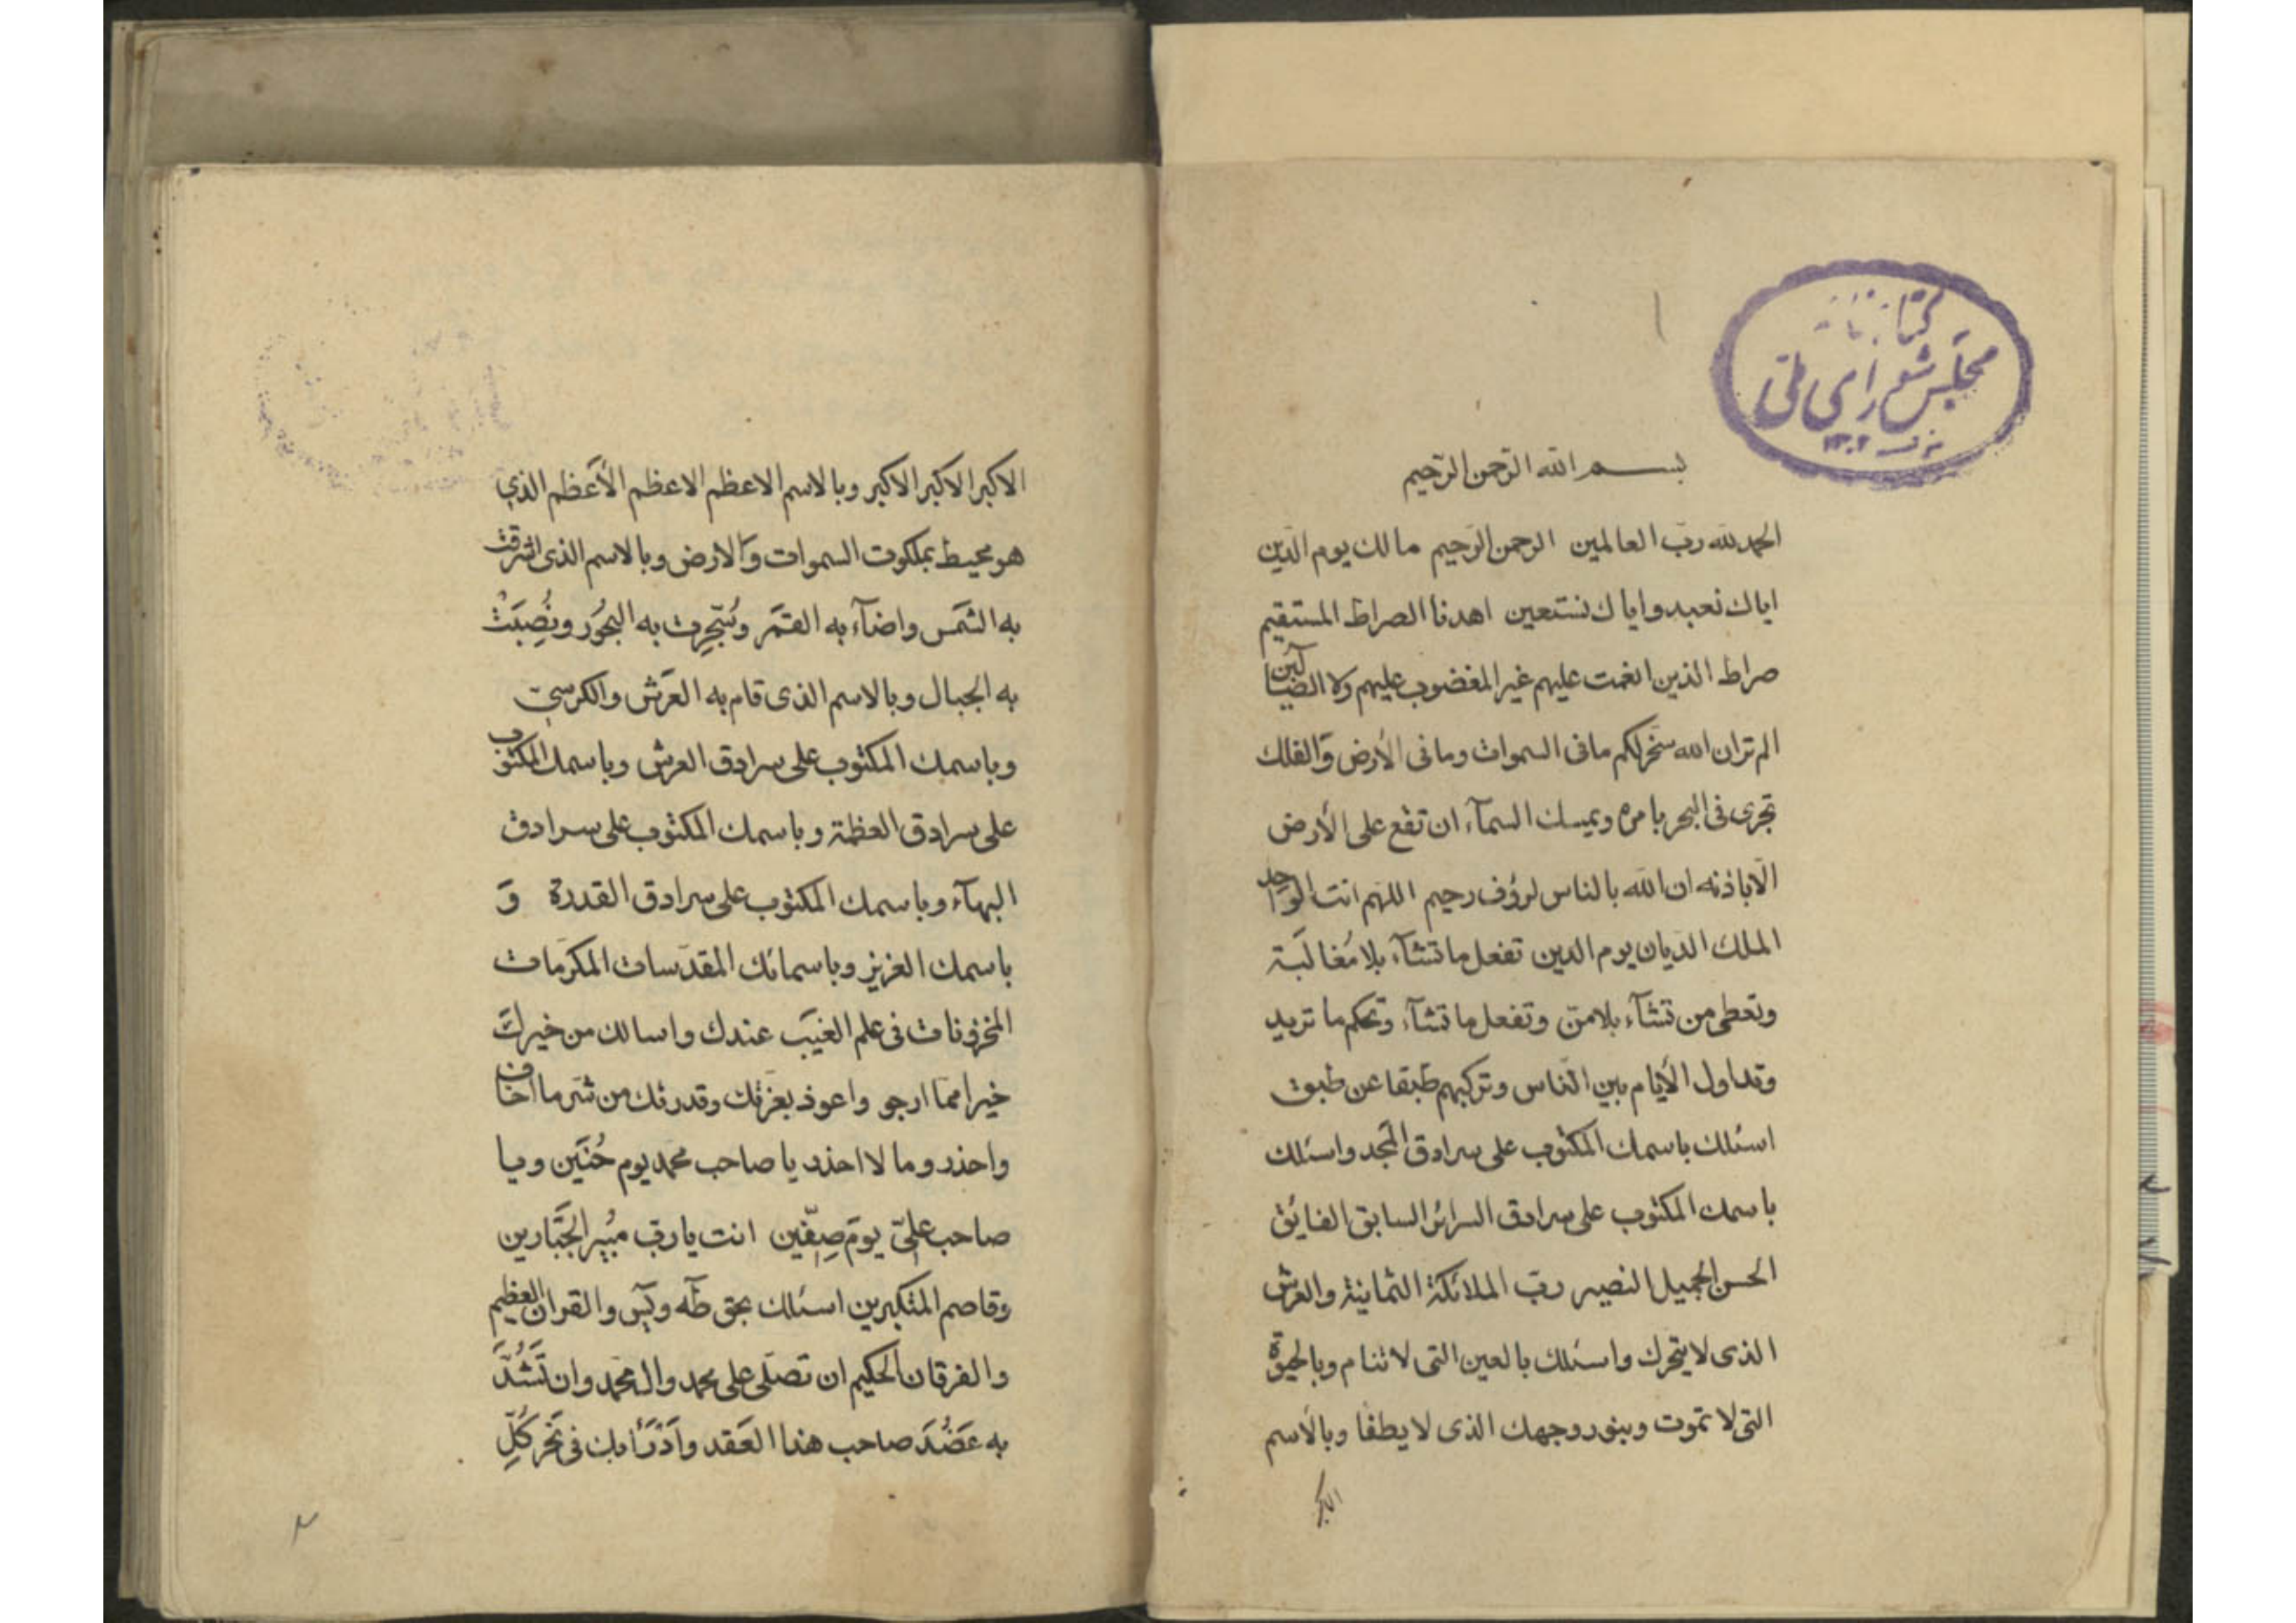 كتابخانه
مجلس شورای ملی
١٣٠٢
١
بسم الله الرحمن الرحيم
الحمد لله ربّ العالمين الرحمن الرّحيم مالك يوم الدّين
اياك نعبد واياك نستعين اهدنا الصراط المستقيم
صراط الذين انعمت عليهم غير المغضوب عليهم ولا الضّالين
الم تر ان الله سخّر لكم ما فى السموات وما فى الأرض وَالفلك
تجرى فى البحر بامره ويمسك السمآء ان تقع على الأرض
الّا باذنه ان الله بالناس لرؤف رحيم اللهم انت الواحد
الملك الدّيان يوم الدين تفعل ما تشآء بلا مُغالَبة
وتعطى من تشآء بلا منّ وتفعل ما تشآء وتحكم ما تريد
وتداول الأيام بين النّاس وتركبهم طبقا عن طبق
اسئلك باسمك المكتوب على سرادق المجد واسئلك
باسمك المكتوب على سرادق السرائر السابق الفايق
الحسن الجميل النصير ربّ الملائكة الثمانية والعرش
الذى لا يتحرك واسئلك بالعين التى لا تنام وبالحيوة
التى لا تموت وبنور وجهك الذى لا يطفأ وبالأسم
الاكبر
الاكبر الاكبر الاكبر وبالاسم الاعظم الاعظم الأعظم الذي
هو محيط بملكوت السموات وَالارض وبالاسم الذى اشرقت
به الشمَس واضآء به القمَر وسُجّرت به البحُور ونُصِبَتْ
به الجبال وبالاسم الذى قام به العَرش والكرسيّ
وباسمك المكتوب على سرادق العرش وباسمك المكتوب
على سرادق العظمة وباسمك المكتوب على سرادق
البهآء وباسمك المكتوب على سرادق القدرة وَ
باسمك العزيز وباسمائك المقدّسات المكرّمات
المخزونات فى علم الغيَب عندك واسالك من خيرك
خيرا ممّا ارجو واعوذ بعزتك وقدرتك من شر ما اخاف
واحذر وما لا احذر يا صاحب محمد يوم حُنَين ويا
صاحب علىّ يومَ صِفّين انت يا ربّ مُبير الجَبّارين
وقاصم المتكبرين اسئلك بحق طه ويس والقران العظيم
والفرقان الحكيم ان تصلّى على محمد وال محمّد وان تَشُدَّ
به عَضُدَ صاحب هذا العَقد وَادْرَأ بك فى نَحر كُلّ
٢